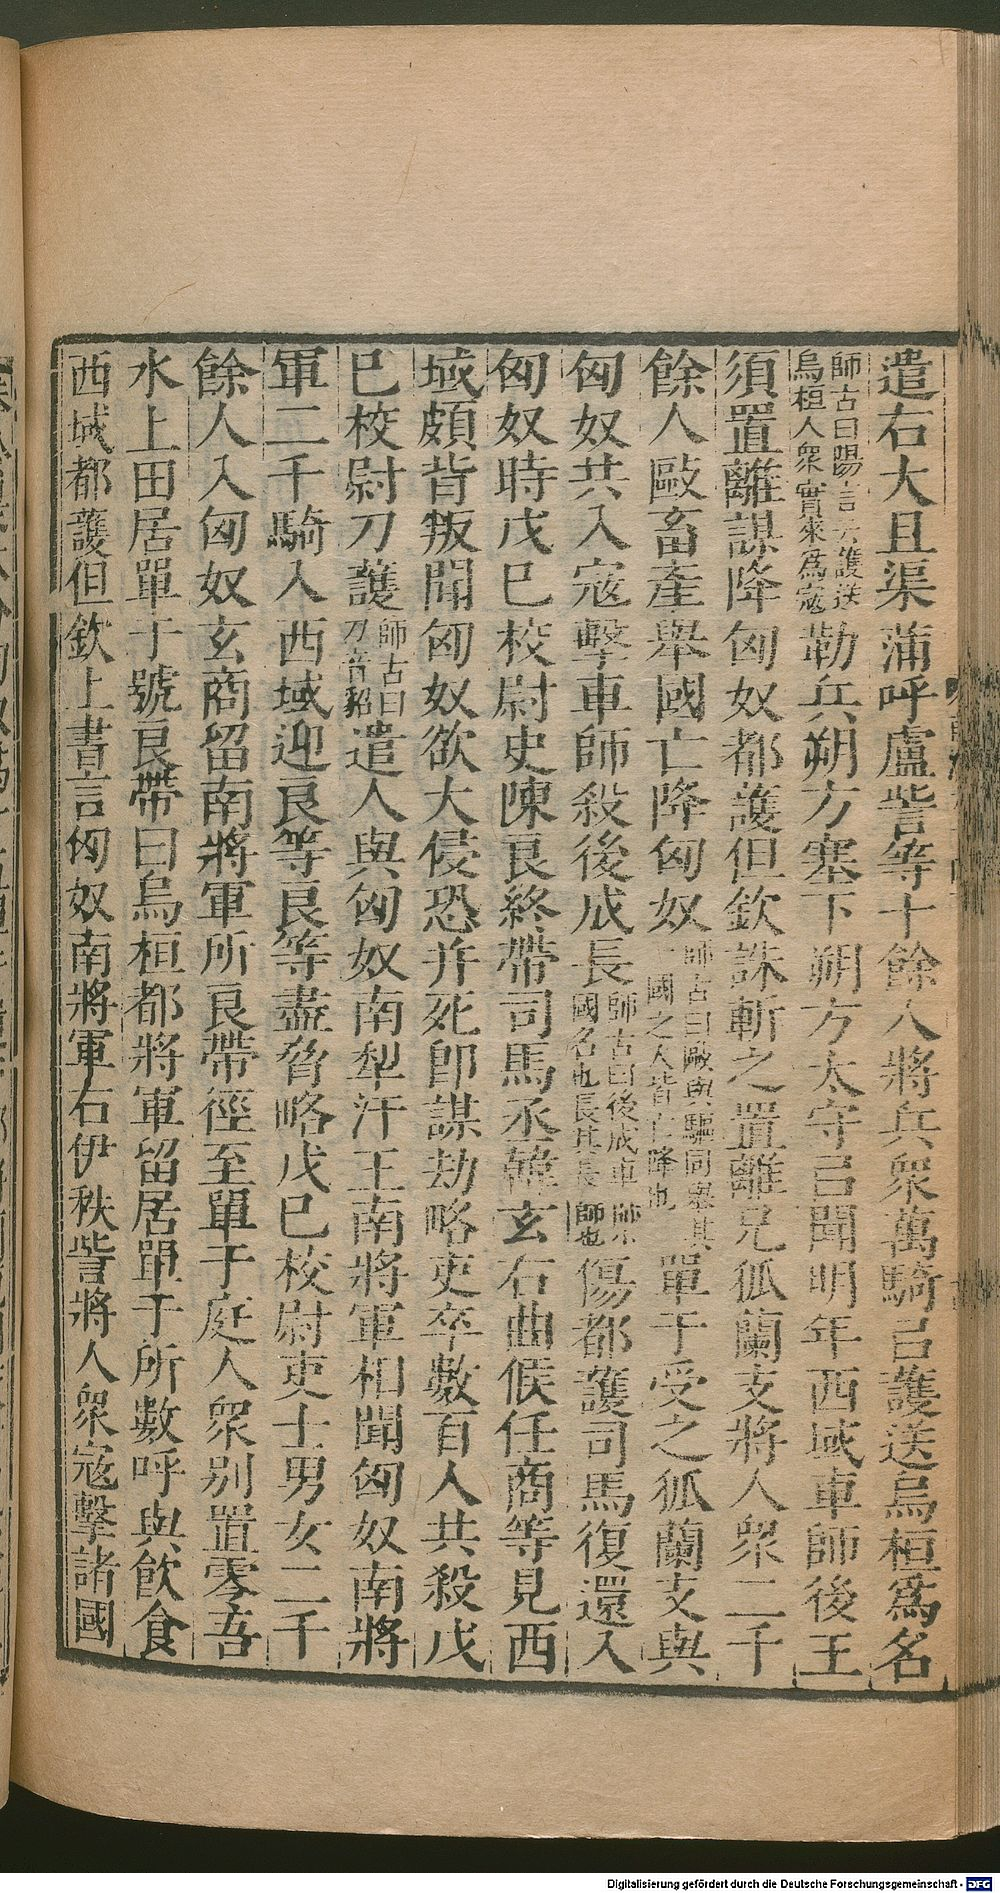 遣右大且渠蒲呼盧訾等十餘人將兵衆萬騎㠯護送烏桓爲名
師古曰陽言云護送烏桓人衆實來爲寇勒兵朔方塞下朔方太守㠯聞明年西域車師後王
須置離謀降匈奴都護但欽誅斬之置離兄狐蘭支將人衆二千
餘人毆畜產舉國亡降匈奴師古曰毆與驅同舉其國之人皆亡降也單于受之狐蘭支與
匈奴共入寇擊車師殺後成長師古曰後成車師小國名也長其長帥也傷都護司馬復還入
匈奴時戊巳校尉史陳良終帶司馬丞韓玄右曲候任商等見西
域頗背叛聞匈奴欲大侵恐并死卽謀劫略吏卒數百人共殺戊
巳校尉刀護師古曰刀音貂遣人與匈奴南犁汗王南將軍相聞匈奴南將
軍二千騎入西域迎良等良等盡脅略戊巳校尉吏士男女二千
餘人入匈奴玄商留南將軍所良帶徑至單于庭人衆别置零吾
水上田居單于號良帶曰烏桓都將軍留居單于所數呼與飮食
西域都護但欽上書言匈奴南將軍右伊秩訾將人衆寇擊諸國
Digitalisierung gefördert durch die Deutsche Forschungsgemeinschaft - DFG